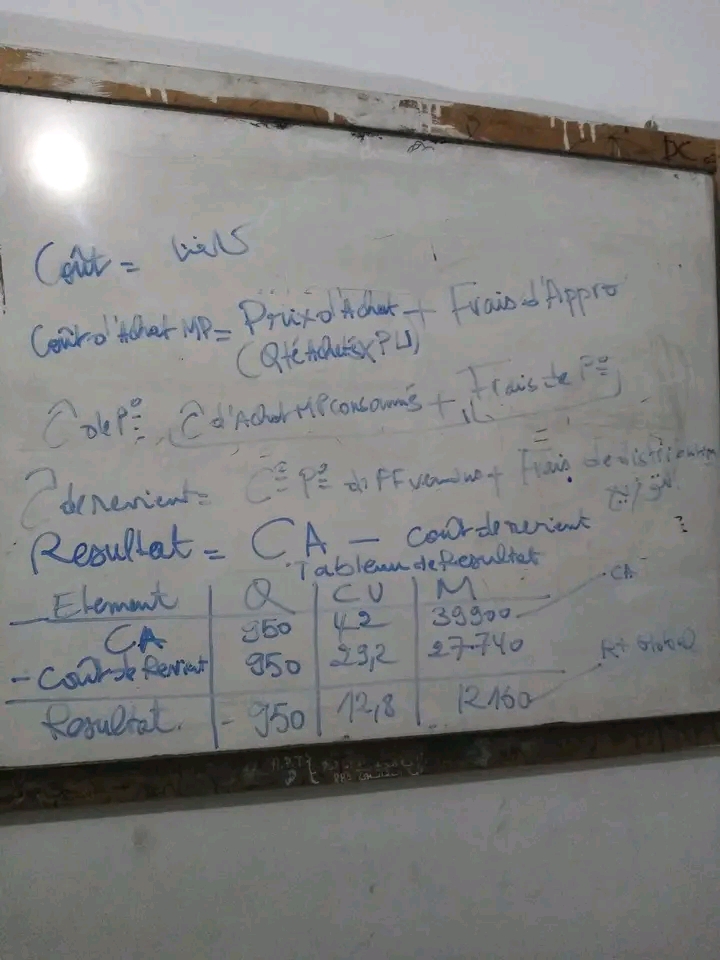 Coût =
Coût d'Achat MP = Prix d'Achat + Frais d'Appro
(Qté Achetés x PU)
C de P° = C d'Achat MP consommés + Frais de P°
C de revient = C P° diff vendus + Frais de distribution
Resultat = CA - coût de revient
Tableau de Resultat
Element | Q | CU | M
CA | 950 | 42 | 39900 CA
- Coût de Revient | 950 | 29,2 | 27.740
Resultat. | 950 | 12,8 | 12160 Rt Global